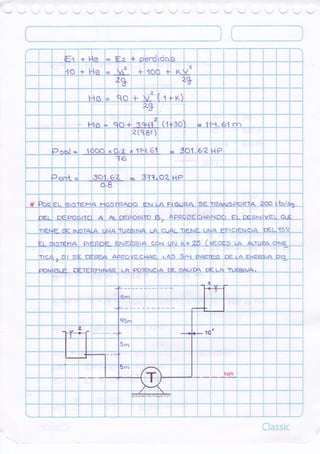 E1 + HB = E2 + perdidas
10 + HB = V₂² / 2g + 100 + K V² / 2g
HB = 90 + V² / 2g (1+K)
HB = 90 + 3.97² / 2(9.81) (1+30) = 114.61 m
Pbal = 1000 x 0.2 x 114.61 / 76 = 301.62 HP
Pont = 301.62 / 0.8 = 377.02 HP
* POR EL SISTEMA MOSTRADO EN LA FIGURA SE TRANSPORTA 200 Lts/sg
DEL DEPOSITO A AL DEPOSITO B, APROBECHANDO EL DESNIVEL QUE
TIENE SE INSTALA UNA TURBINA LA CUAL TIENE UNA EFICIENCIA DEL 85%
EL SISTEMA PIERDE ENERGIA CON UN K = 25 (VECES LA ALTURA CINE
TICA, SI SE DESEA APROVECHAR LAS 3/4 PARTES DE LA ENERGIA DIS
PONIBLE DETERMINAR LA POTENCIA DE SALIDA DE LA TURBINA.
1
5m
95m
2
10"
3m
5m
T
NR
Classic